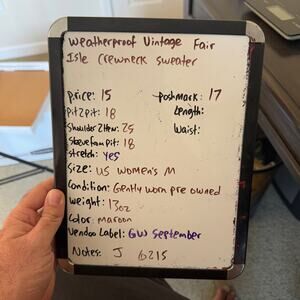 Weatherproof Vintage Fair
Isle Crewneck Sweater
Price: 15
Poshmark: 17
Pit2pit: 18
Length:
Shoulder2Hem: 25
Waist:
Sleeve from pit: 18
Stretch: Yes
Size: US Women's M
Condition: Gently worn pre owned
Weight: 13oz
Color: maroon
Vendoo Label: GW September
Notes: J 6215